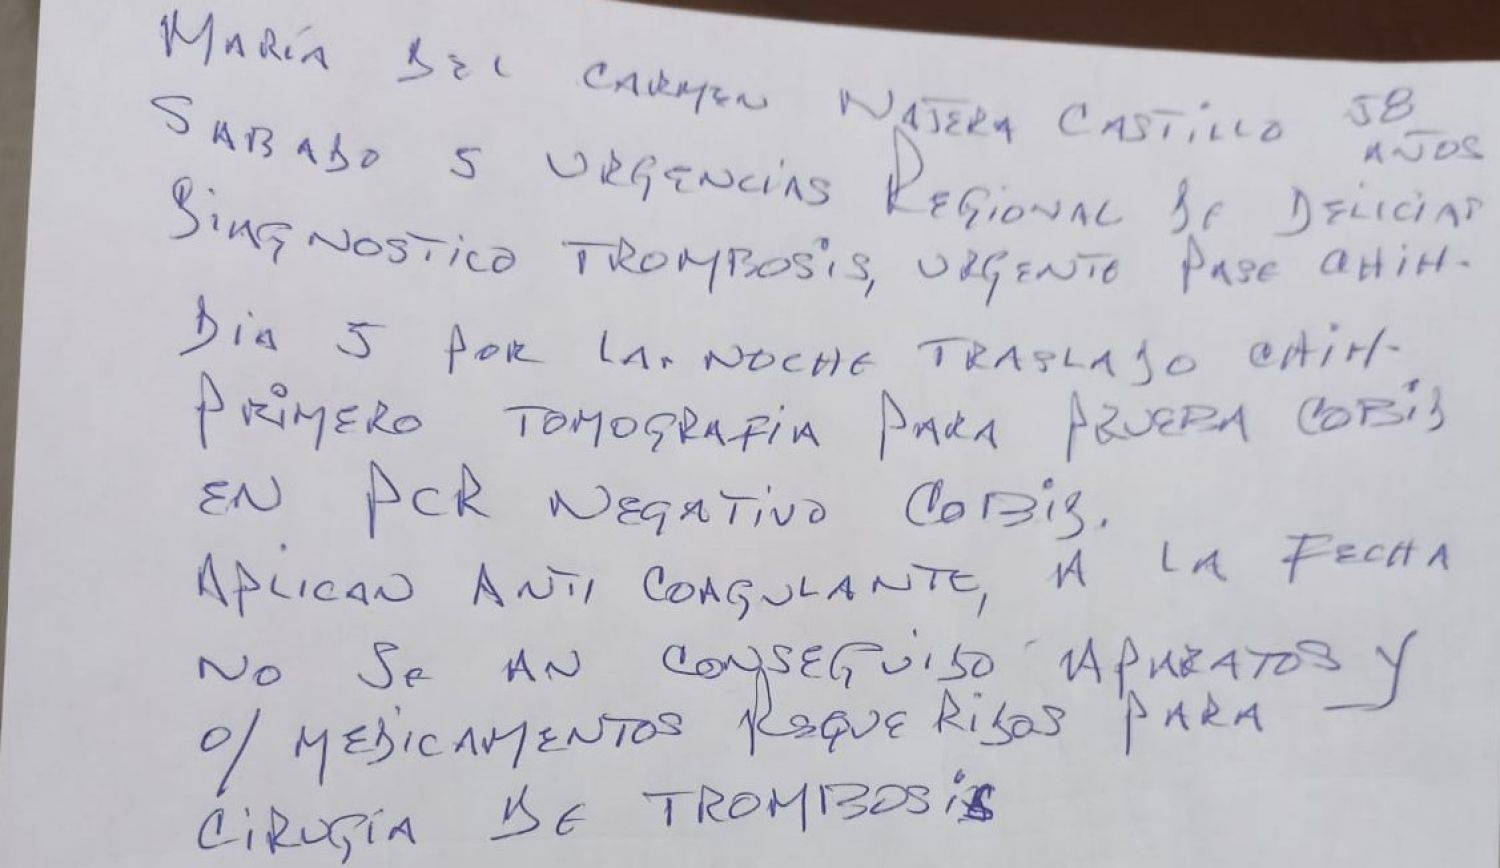 MARÍA DEL CARMEN NAJERA CASTILLO 58 AÑOS
SABADO 5 URGENCIAS REGIONAL DE DELICIAS
DIAGNOSTICO TROMBOSIS, URGENTE PASE CHIH.
DIA 5 POR LA NOCHE TRASLADO CHIH.
PRIMERO TOMOGRAFIA PARA PRUEBA COBID
EN PCR NEGATIVO COBID.
APLICAN ANTI COAGULANTE, A LA FECHA
NO SE AN CONSEGUIDO APARATOS Y
O/ MEDICAMENTOS REQUERIDOS PARA
CIRUGÍA DE TROMBOSIS